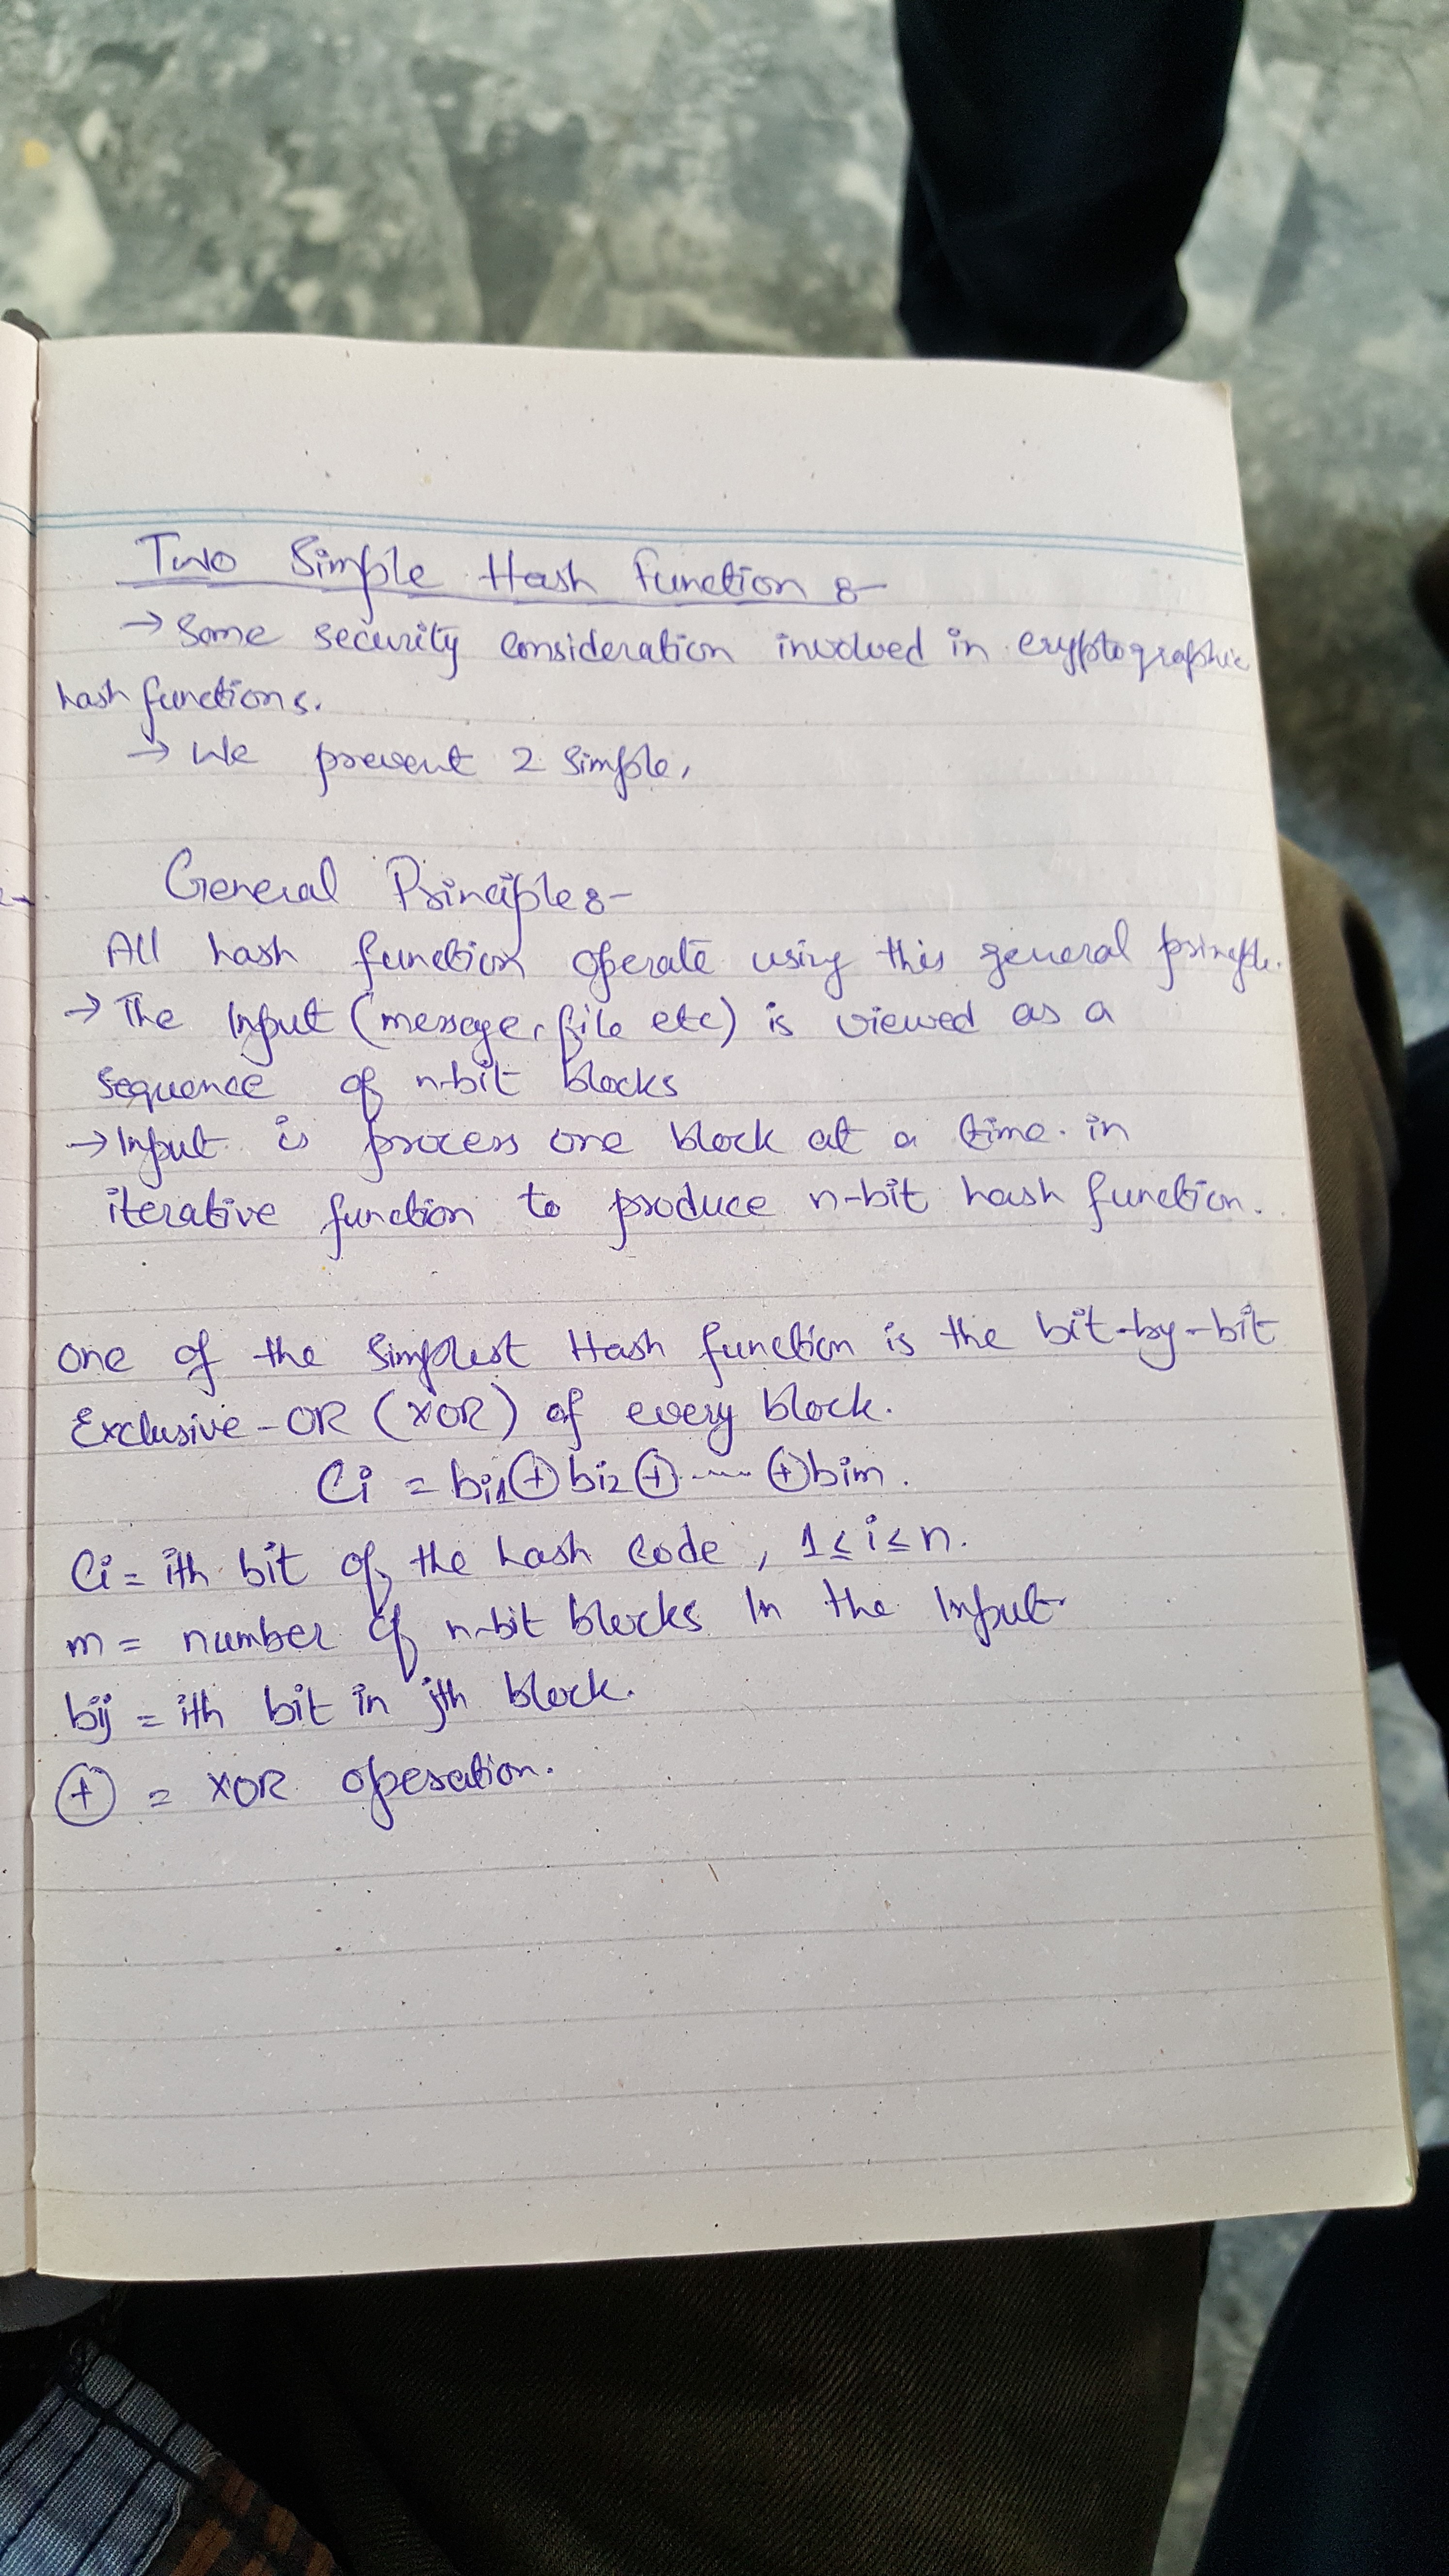 Two Simple Hash function :-
→ Some security consideration involved in cryptographic
hash functions.
→ We prevent 2 simple,
General Principle :-
All hash function operate using this general principle.
→ The Input (message, file etc) is viewed as a
sequence of n-bit blocks
→ Input is process one block at a time. in
iterative function to produce n-bit hash function.
one of the simplest Hash function is the bit-by-bit
Exclusive-OR (XOR) of every block.
Ci = bi1 ⊕ bi2 ⊕ ..... ⊕ bim.
Ci = ith bit of the hash code, 1 ≤ i ≤ n.
m = number of n-bit blocks In the Input.
bij = ith bit in jth block.
⊕ = XOR operation.